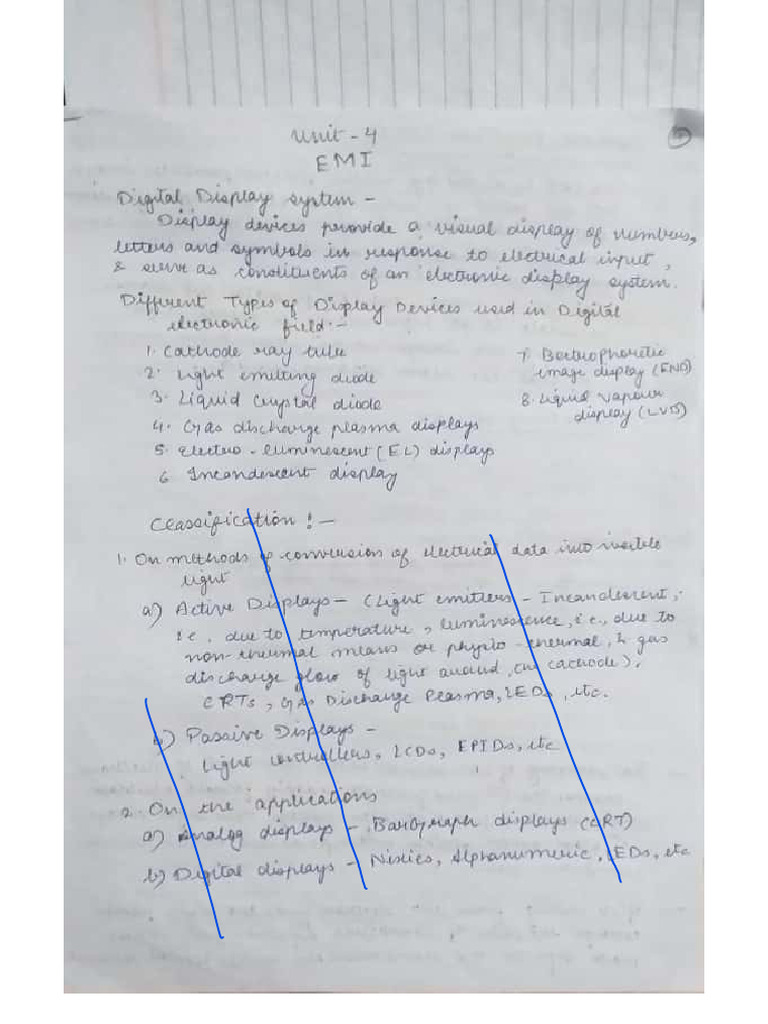 Unit - 4
EMI
Digital Display system -
Display devices provide a visual display of numbers,
letters and symbols in response to electrical input,
& serve as constituents of an electronic display system.
Different Types of Display Devices used in Digital
electronic field:-
1. Cathode ray tube
2. Light emitting diode
3. Liquid Crystal diode
4. Gas discharge plasma displays
5. Electro-luminescent (EL) displays
6. Incandescent display
7.
image display
8. Liquid vapour
display (LVD)
Classification! -
1. On methods of conversion of electrical data into visible
light
a) Active Displays - (Light emitters - Incandescent,
i.e, due to temperature, luminescence, i.e., due to
non-thermal means or physio-thermal, & gas
discharge glow of light around, cathode),
CRTs, Gas Discharge Plasma, LEDs, etc.
b) Passive Displays -
Light controllers, LCDs, EPIDs, etc
2. On the applications
a) Analog displays - Bar graph displays (CRT)
b) Digital displays - Nixies, Alphanumeric, LEDs, etc